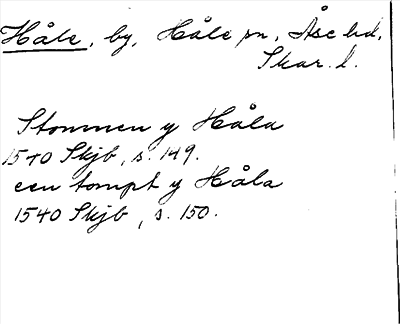 Håle, by, Håle sn, Åse hd,
Skar. l.
Stommen y Håla
1540 Skjb, s. 149.
een tompt y Håla
1540 Skjb, s. 150.